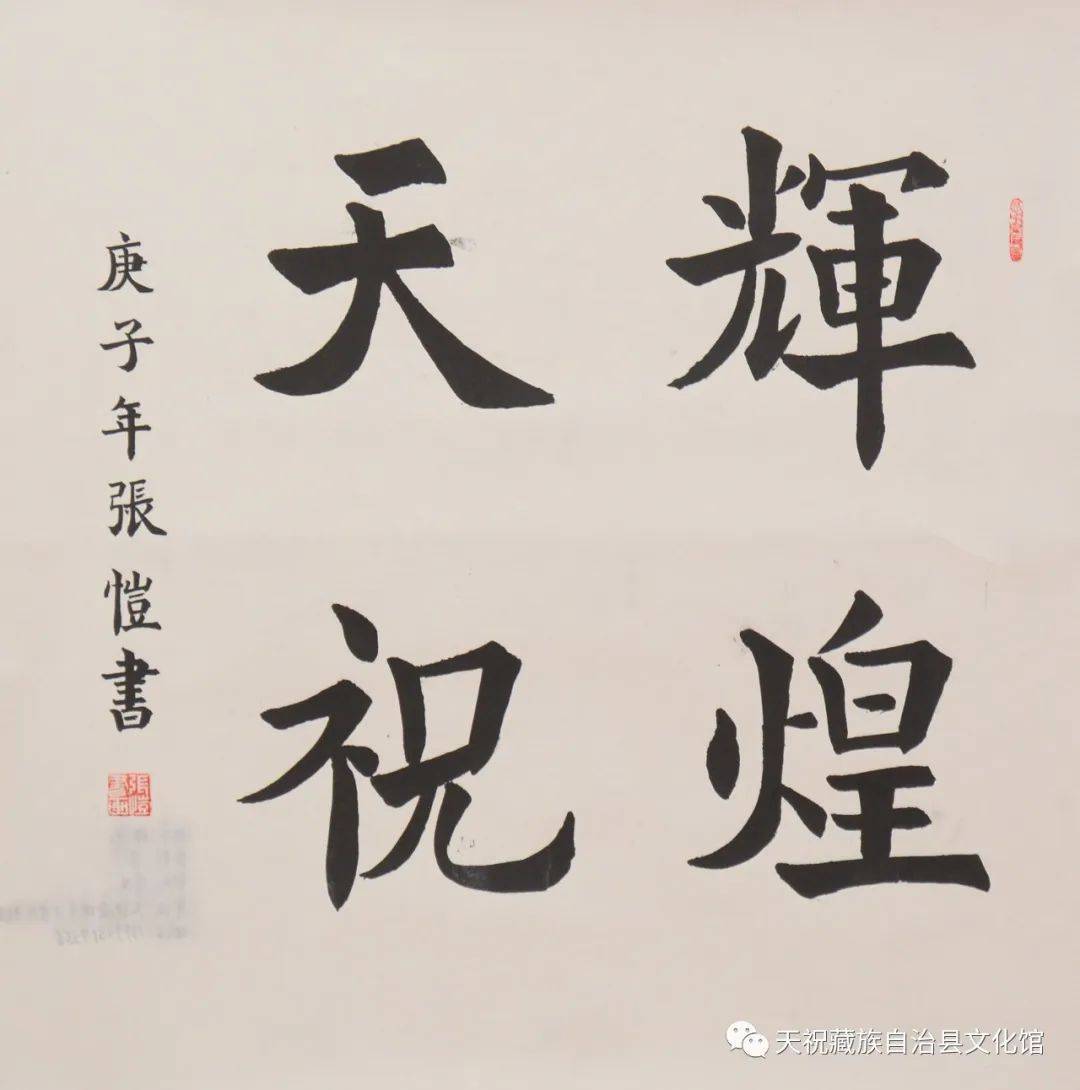 輝煌
天祝
庚子年張愷書
張愷
天祝藏族自治县文化馆